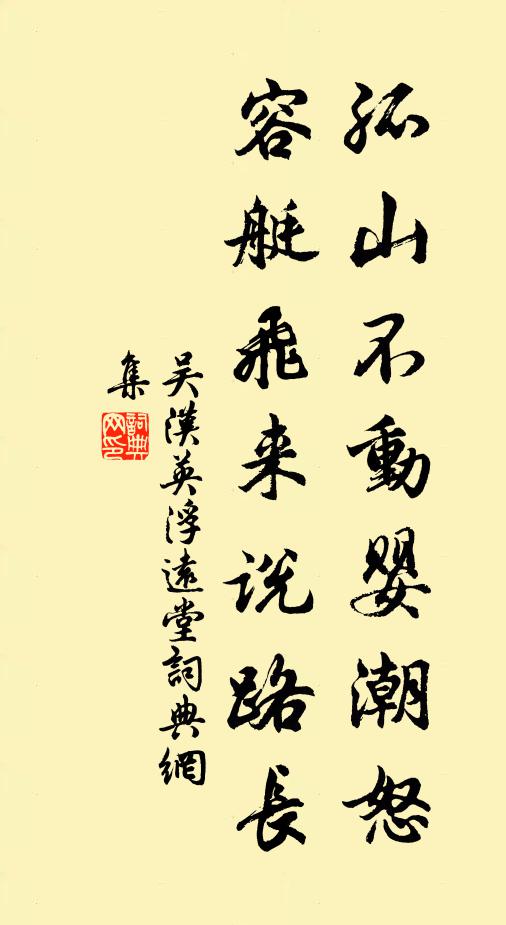 孤山不動嬰潮怒
容艇飛来说路長
吴漢英浮遠堂詞典網
集
詞典網印